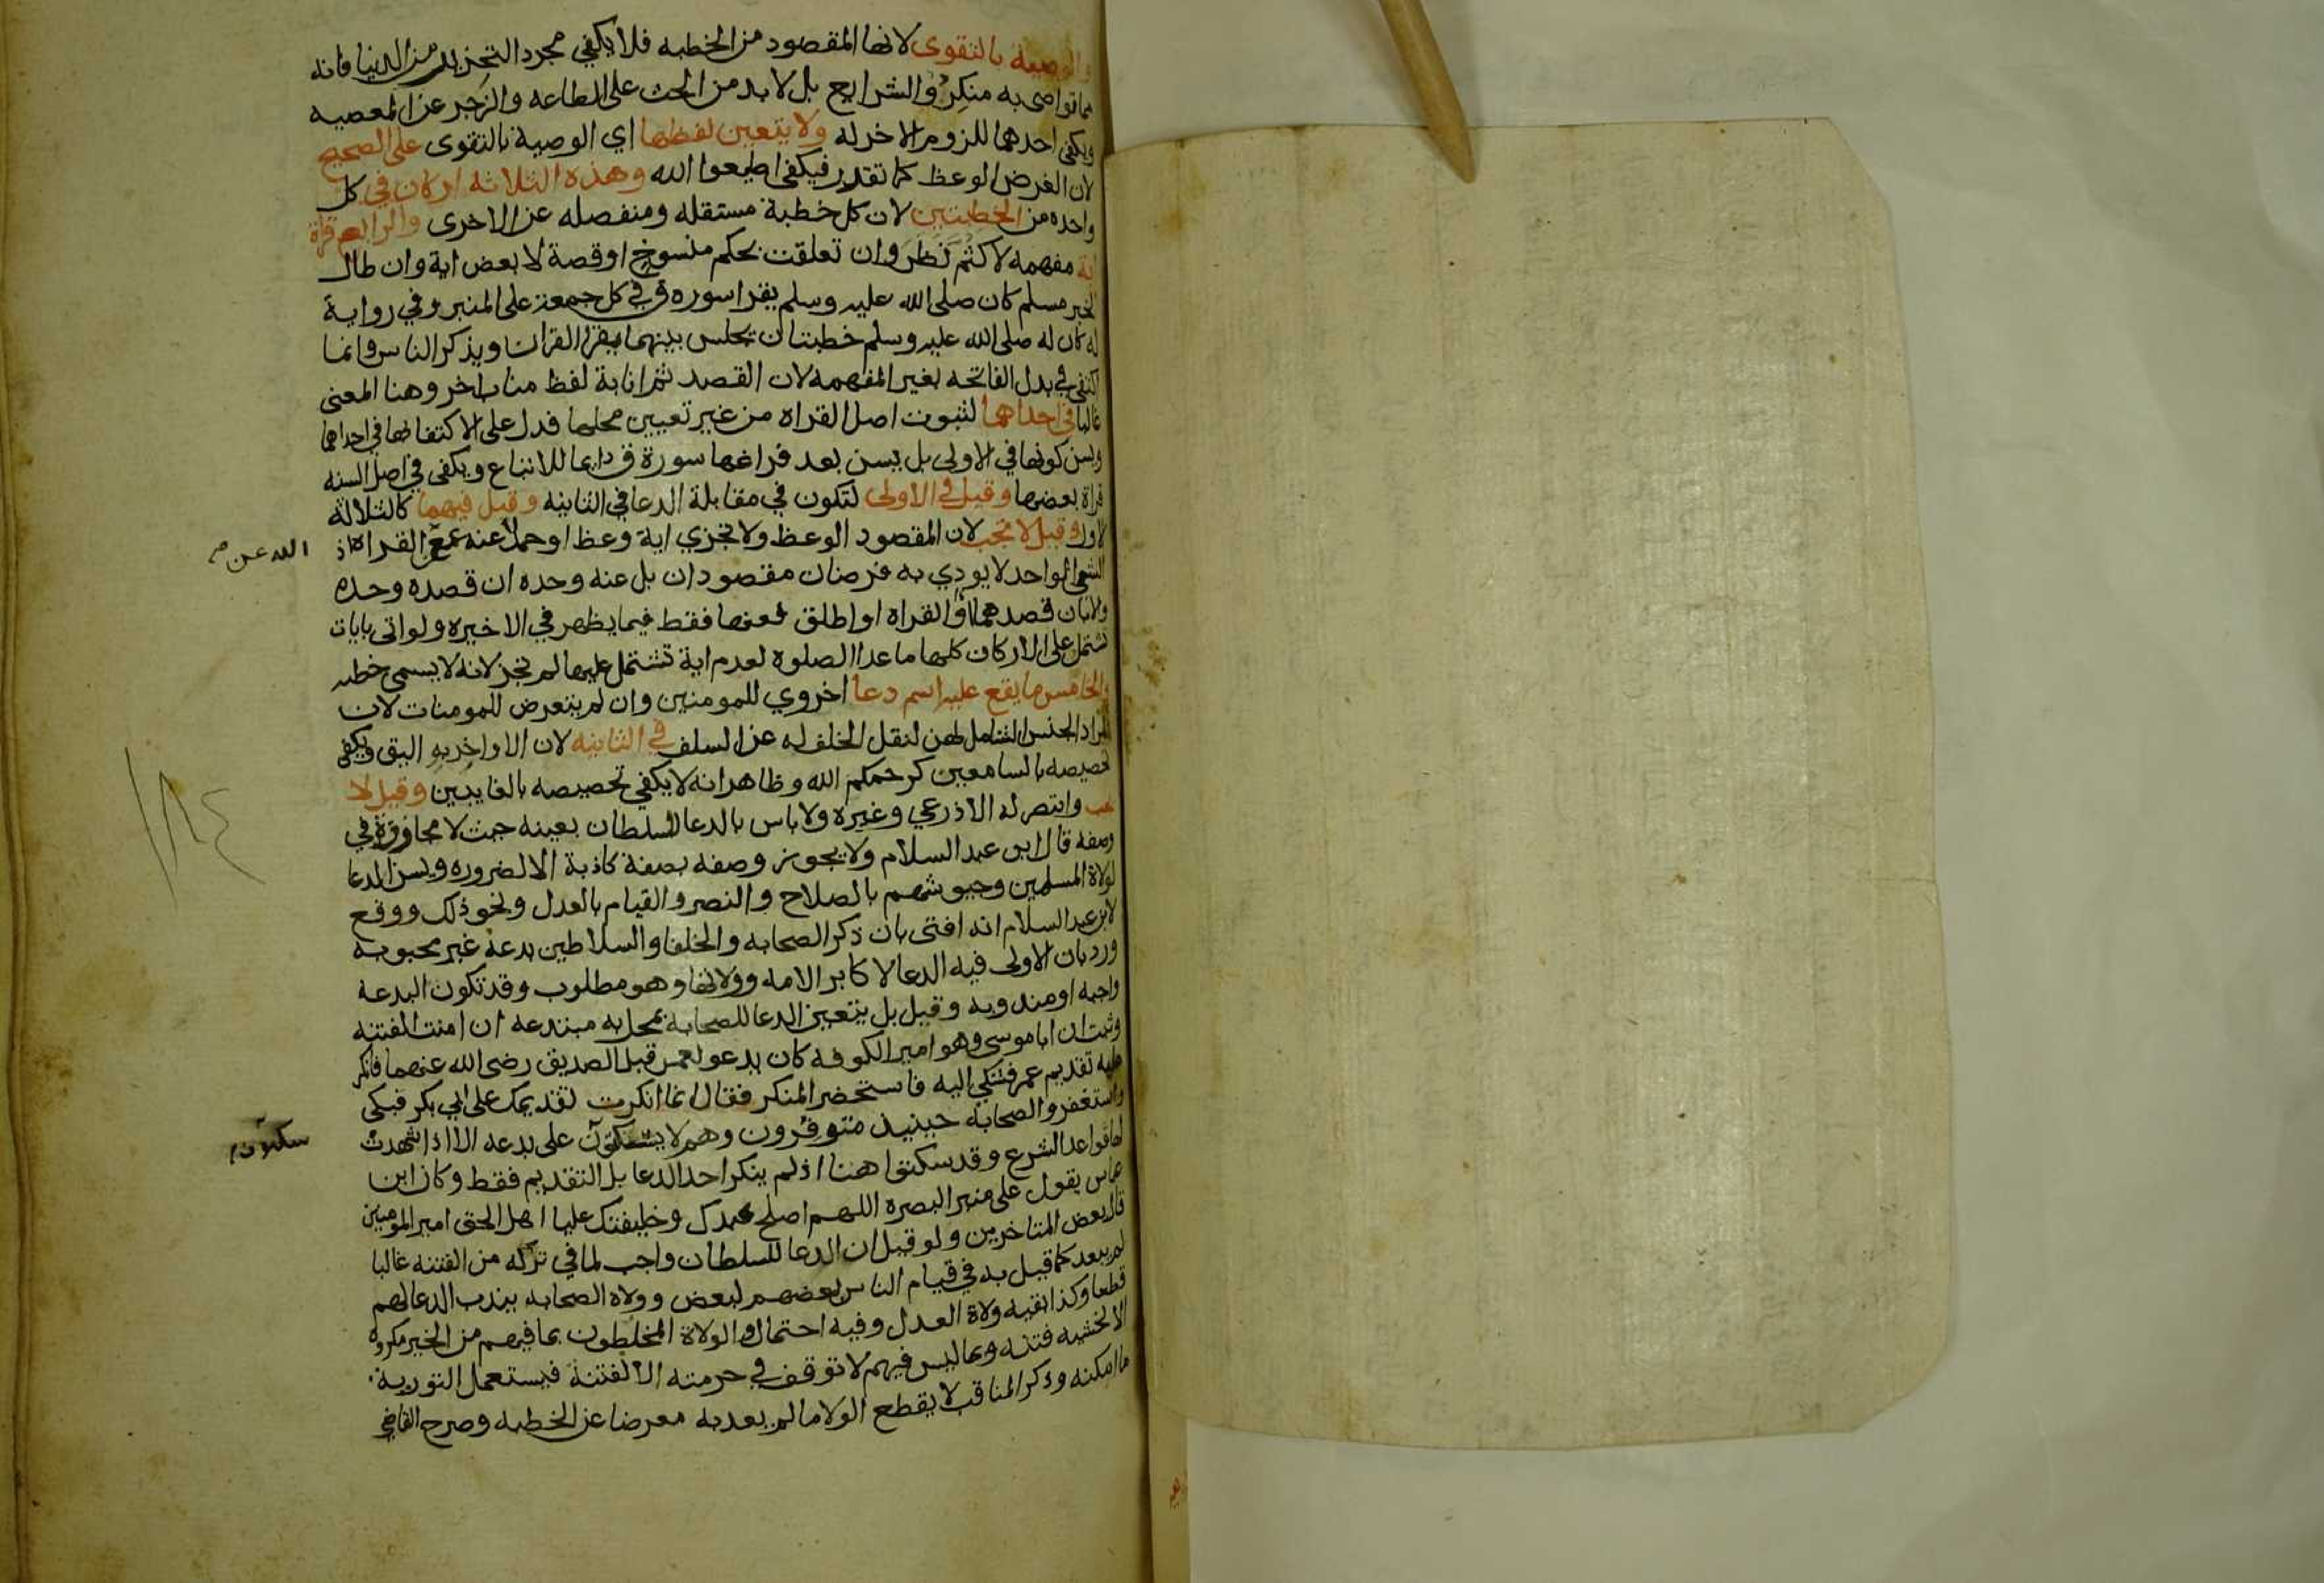 والوصية بالتقوى لانها المقصود من الخطبه فلا يكفي مجرد التحذير من الدنيا فانه
مما تواصى به منكروا الشرايع بل لا بد من الحث على الطاعه والزجر عن المعصيه
ويكفي احدهما للزوم الاخر له ولا يتعين لفظها اي الوصية بالتقوى على الصحيح
لان الغرض الوعظ كما تقدم فيكفي اطيعوا الله وهذه الثلاثه اركان في كل
واحده من الخطبتين لان كل خطبة مستقله ومنفصله عن الاخرى والرابع قراة
اية مفهمه لا كثم نظر وان تعلقت بحكم منسوخ او قصة لا بعض اية وان طال
لخبر مسلم كان صلى الله عليه وسلم يقرا سوره ق في كل جمعة على المنبر وفي رواية
له كان له صلى الله عليه وسلم خطبتان يجلس بينهما يقرا القران ويذكر الناس وانما
اكتفي في بدل الفاتحه بغير المفهمه لان القصد ثم انابة لفظ مناب اخر وهنا المعنى
غالبا في احداهما لثبوت اصل القراه من غير تعيين محلها فدل على الاكتفا بها في احداهما
ويسن كونها في الاولى بل يسن بعد فراغها سورة ق دايما للاتباع ويكفي في اصل السنه
قراة بعضها وقيل في الاولى لتكون في مقابلة الدعا في الثانيه وقيل فيهما كالثلاثة
الاول وقيل لا تجب لان المقصود الوعظ ولا تجزي اية وعظ او حمد عنه مع القراه اذ
الله عن م
الشي الواحد لا يودي به فرضان مقصودان بل عنه وحده ان قصده وحده
والا بان قصدهما او القراه او اطلق فعنها فقط فيما يظهر في الاخيره ولو اتى بايات
تشتمل على الاركان كلها ما عدا الصلوة لعدم اية تشتمل عليها لم تجز لانه لا يسمى خطبه
والخامس ما يقع عليه اسم دعا اخروي للمومنين وان لم يتعرض للمومنات لان
المراد الجنس الشامل لهن لنقل الخلف له عن السلف في الثانيه لان الاواخر به اليق ويكفي
تخصيصه بالسامعين كرحمكم الله وظاهر انه لا يكفي تخصيصه بالغايبين وقيل لا
يجب وانتصر له الاذرعي وغيره ولا باس بالدعا للسلطان بعينه حيث لا مجازفة في
وصفه قال ابن عبد السلام ولا يجوز وصفه بصفة كاذبة الا لضروره ويسن الدعا
لولاة المسلمين وجيوشهم بالصلاح والنصر والقيام بالعدل ونحو ذلك ووقع
١٨٤
لابن عبد السلام انه افتى بان ذكر الصحابه والخلفا والسلاطين بدعة غير محبوبه
ورد بان الاولى فيه الدعا لاكابر الامه وولاتها وهو مطلوب وقد تكون البدعة
واجبه او مندوبه وقيل بل يتعين الدعا للصحابة بمحل به مبتدعه ان امنت الفتنه
وثبت ان ابا موسى وهو امير الكوفه كان يدعو لعمر قبل الصديق رضي الله عنهما فانكر
عليه تقديم عمر فشكي اليه فاستحضر المنكر فقال انما انكرت تقديمك على ابي بكر فبكى
واستغفر والصحابه حينيذ متوفرون وهم لا يسكتون على بدعه الا اذا شهدت
سكتون
لها قواعد الشرع وقد سكتوا هنا اذ لم ينكر احد الدعا بل التقديم فقط وكان ابن
عباس يقول على منبر البصره اللهم اصلح عبدك وخليفتك عليا اهل الحق امير المومنين
قال بعض المتاخرين ولو قيل ان الدعا للسلطان واجب لما في تركه من الفتنه غالبا
لم يبعد كما قيل به في قيام الناس بعضهم لبعض وولاه الصحابه يندب الدعا لهم
قطعا وكذا بقيه ولاة العدل وفيه احتمال والولاة المخلطون بما فيهم من الخير مكروه
الا لخشيه فتنه وبما ليس فيهم لا توقف في حرمته الا لفتنة فيستعمل التورية
ما امكنه وذكر المناقب لا يقطع الولا ما لم يعد به معرضا عن الخطبه وصرح القاضي